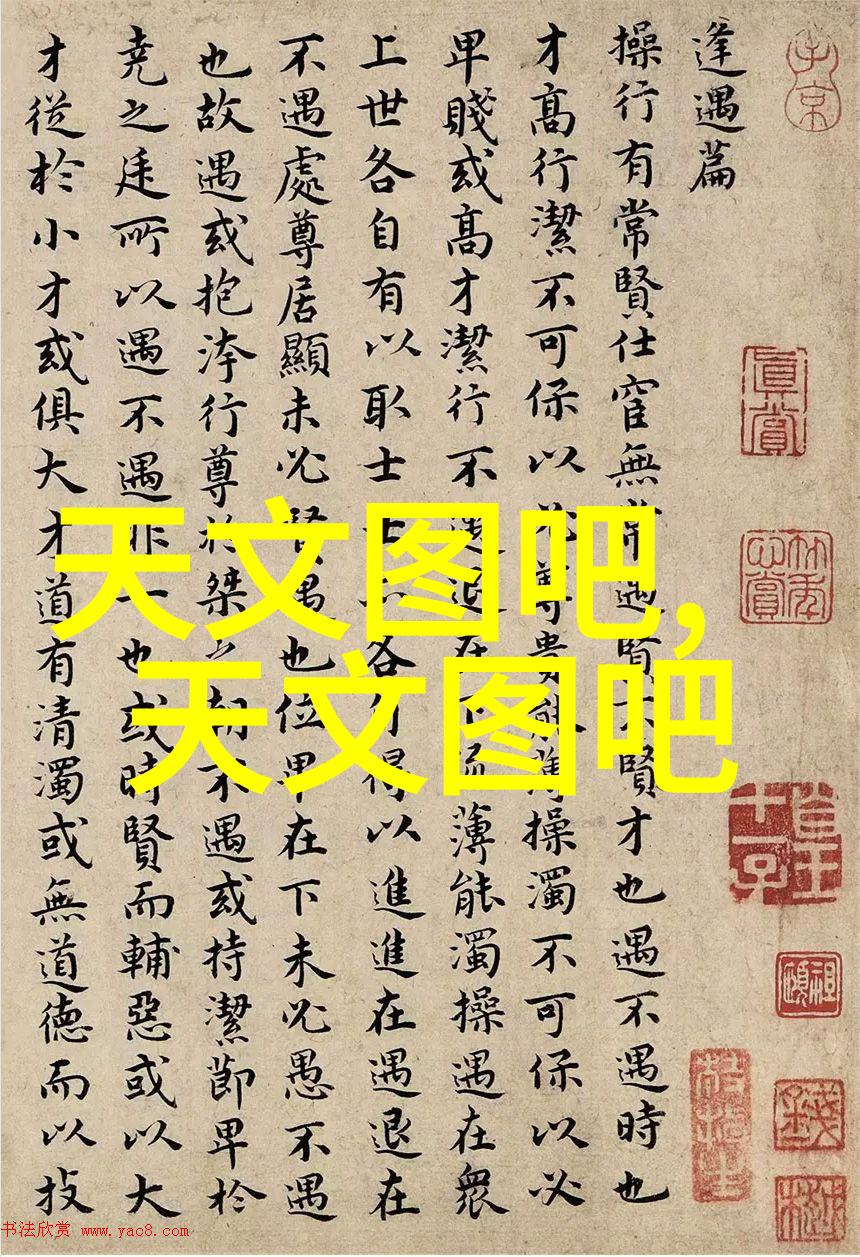 逢遇篇
操行有常賢仕宦無常遇賢不賢才也遇不遇時也
才高行潔不可保以必尊貴能薄操濁不可保以必
卑賤或高才潔行不遇退在下流薄能濁操遇在衆
上世各自有以取士士亦各自得以進進在遇退在
不遇處尊居顯未必賢遇也位卑在下未必愚不遇
也故遇或抱洿行尊於桀之朝不遇或持潔節卑於
堯之廷所以遇不遇非一也或時賢而輔惡或以大
才從於小才或俱大才道有清濁或無道德而以技
天文图吧,
天文图吧
子京
真賞
书法欣赏 www.yac8.com